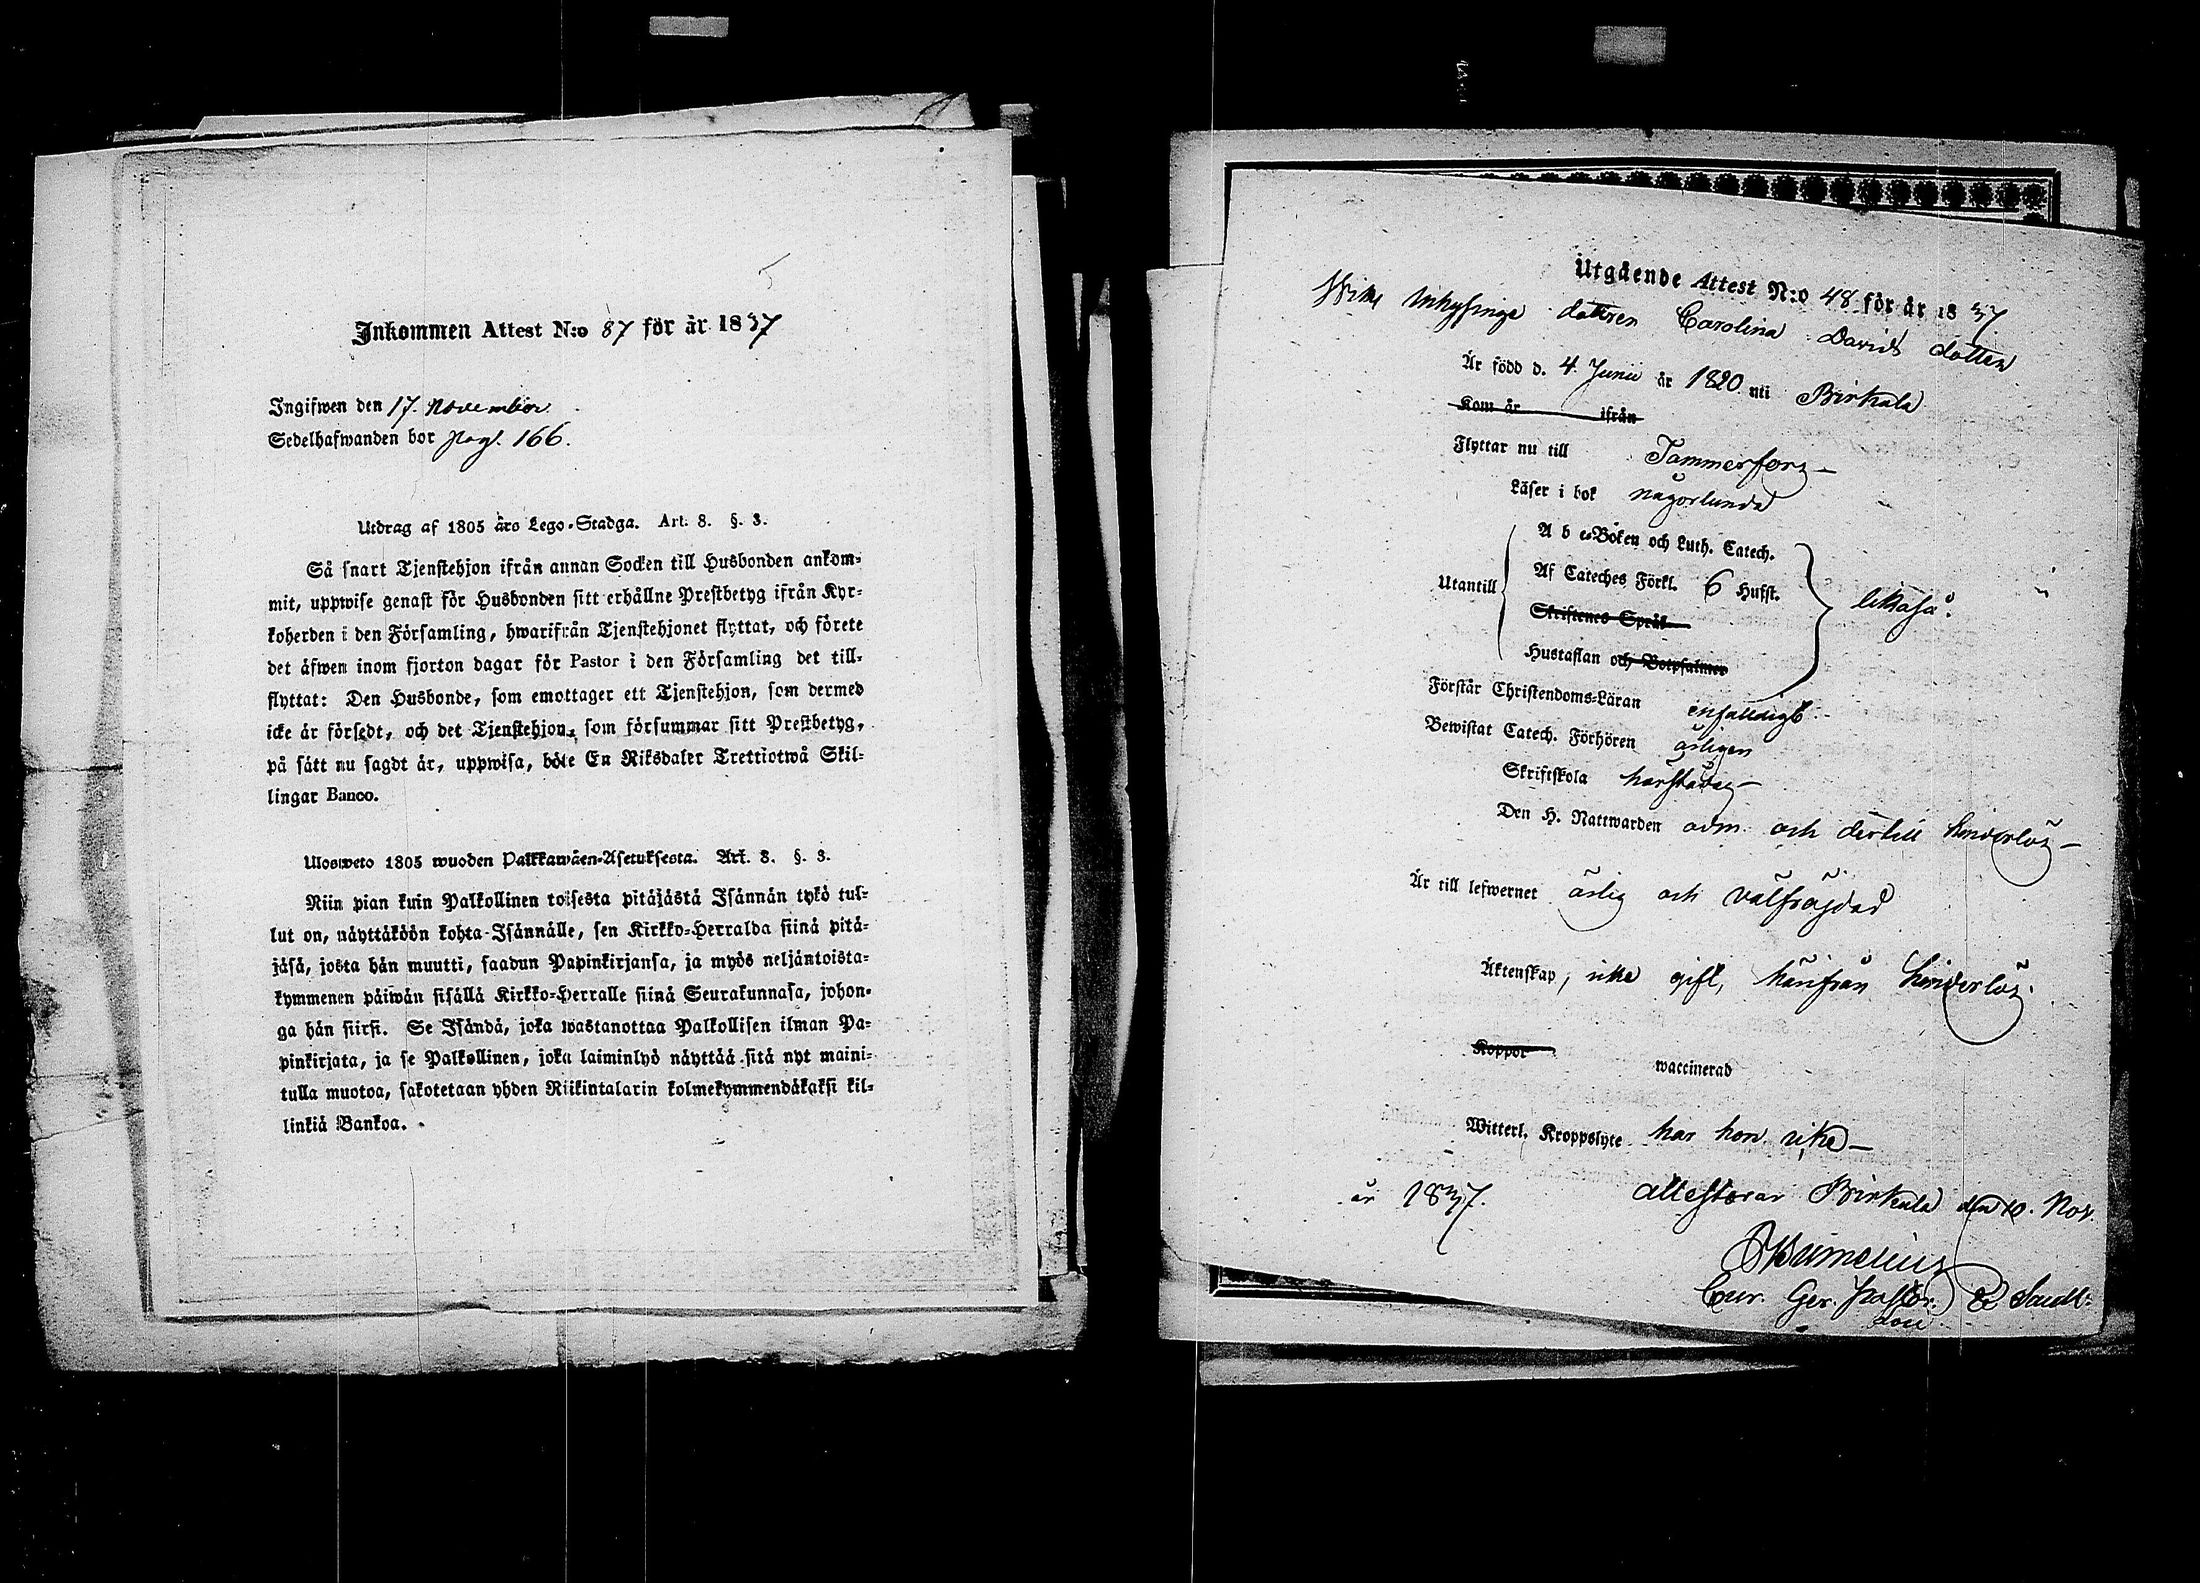 Inkommen Attest N:o 87 för år 1837
Ingifwen den 17. November.
Sedelhafwanden bor pag. 166.
Utdrag af 1805 års Lego-Stadga. Art. 8. §. 3.
Så snart Tjenstehjon ifrån annan Socken till Husbonden ankom-
mit, uppwise genast för Husbonden sitt erhållne Prestbetyg ifrån Kyr-
koherden i den Församling, hwarifrån Tjenstehjonet flyttat, och förete
det äfwen inom fjorton dagar för Pastor i den Församling det till-
flyttat: Den Husbonde, som emottager ett Tjenstehjon, som dermed
icke är försedt, och det Tjenstehjon, som försummar sitt Prestbetyg,
på sätt nu sagdt är, uppwisa, böte En Riksdaler Trettiotwå Skil-
lingar Banco.
Ulosweto 1805 wuoden Palkkawäen-Asetuksesta. Art. 8. §. 3.
Niin pian kuin Palkollinen toisesta pitäjästä Isännän tykö tul-
lut on, näyttäköön kohta Isännälle, sen Kirkko-Herralda siinä pitä-
jäsä, josta hän muutti, saadun Papinkirjansa, ja myös neljäntoista-
kymmenen päiwän sisällä Kirkko-Herralle siinä Seurakunnasa, johon-
ga hän siirsi. Se Isändä, joka wastanottaa Palkollisen ilman Pa-
pinkirjata, ja se Palkollinen, joka laiminlyö näyttää sitä nyt maini-
tulla muotoa, sakotetaan yhden Riikintalarin kolmekymmendäkaksi kil-
linkiä Bankoa.
Utgående Attest N:o 48 för år 1837.
Inhysinge dottren Carolina Davids dotter
Är född d. 4 Junii år 1820 uti Birkala
Kom år ifrån
Flyttar nu till Tammerfors
Läser i bok någorlunda
A b c-Boken och Luth. Catech.
Utantill Af Cateches Förkl. 6 Hufst. likaså.
Skriftenes Språk
Hustaflan och Botpsalmer
Förstår Christendoms-Läran enfaldigt.
Bewistat Catech. Förhören årligen
Skriftskola härstädes
Den H. Nattwarden adm. och dertill hinderlös
Är till lefwernet ärlig och välfräjdad
Äktenskap, icke gift, härifrån hinderlös.
Koppor waccinerad
Witterl. Kroppslyte har hon icke
attesterar Birkala den 10. Nov.
år 1837.
Cur. Ger. Pastor.